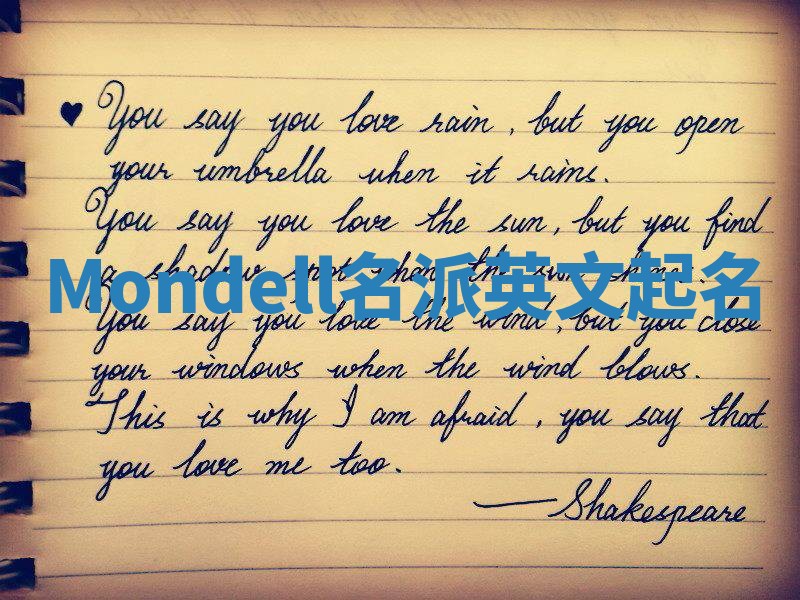 ♥ You say you love rain, but you open
your umbrella when it rains.
You say you love the sun, but you find
a shadow spot when the sun shines.
Mondell名派英文起名
You say you love the wind, but you close
your windows when the wind blows.
This is why I am afraid, you say that
you love me too.
—Shakespeare